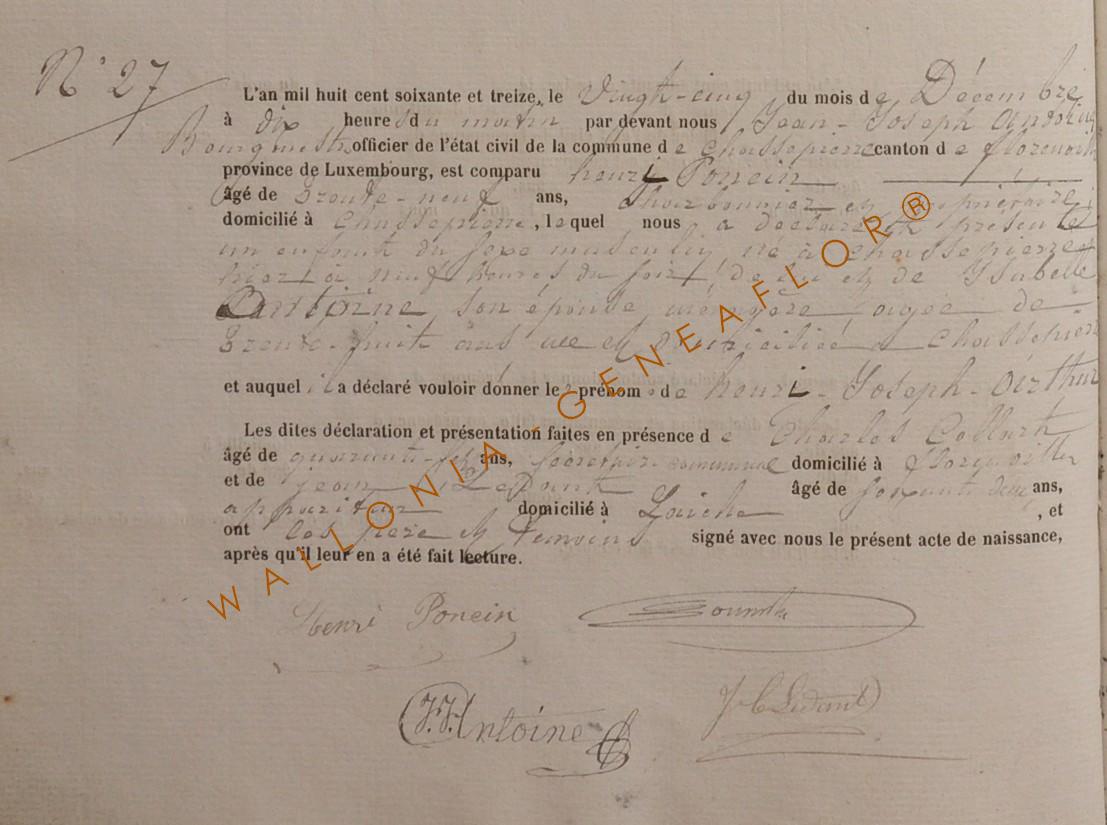 N° 27
L'an mil huit cent soixante et treize, le Vingt-cinq du mois de Décembre
à dix heures du matin par devant nous Jean-Joseph Antoine
Bourgmestre officier de l'état civil de la commune de Chassepierre canton de Florenville
province de Luxembourg, est comparu henri Poncin
âgé de trente-neuf ans, Charbonnier et propriétaire
domicilié à Chassepierre, lequel nous a déclaré et présenté
un enfant du sexe masculin, né à Chassepierre
hier à neuf heures du soir, de lui et de Isabelle
Antoine son épouse ménagère agée de
trente-huit ans née et domiciliée à Chassepierre
et auquel il a déclaré vouloir donner les prénoms de henri-Joseph-Arthur
Les dites déclaration et présentation faites en présence de Charles Collart
âgé de quarante- ans, Secrétaire communal domicilié à Florenville
et de jean Ledant âgé de soixante deux ans,
appariteur domicilié à Laiche, et
ont les père et témoins signé avec nous le présent acte de naissance,
après qu'il leur en a été fait lecture.
Henri Poncin
J.J. Antoine
Ledant
WALLONIA-GENEAFLOR®